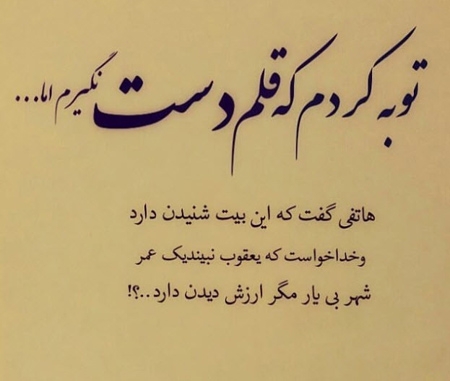 توبه کردم که قلم دست نگیرم اما...
هاتفی گفت که این بیت شنیدن دارد
وخداخواست که یعقوب نبیندیک عمر
شهر بی یار مگر ارزش دیدن دارد..؟!